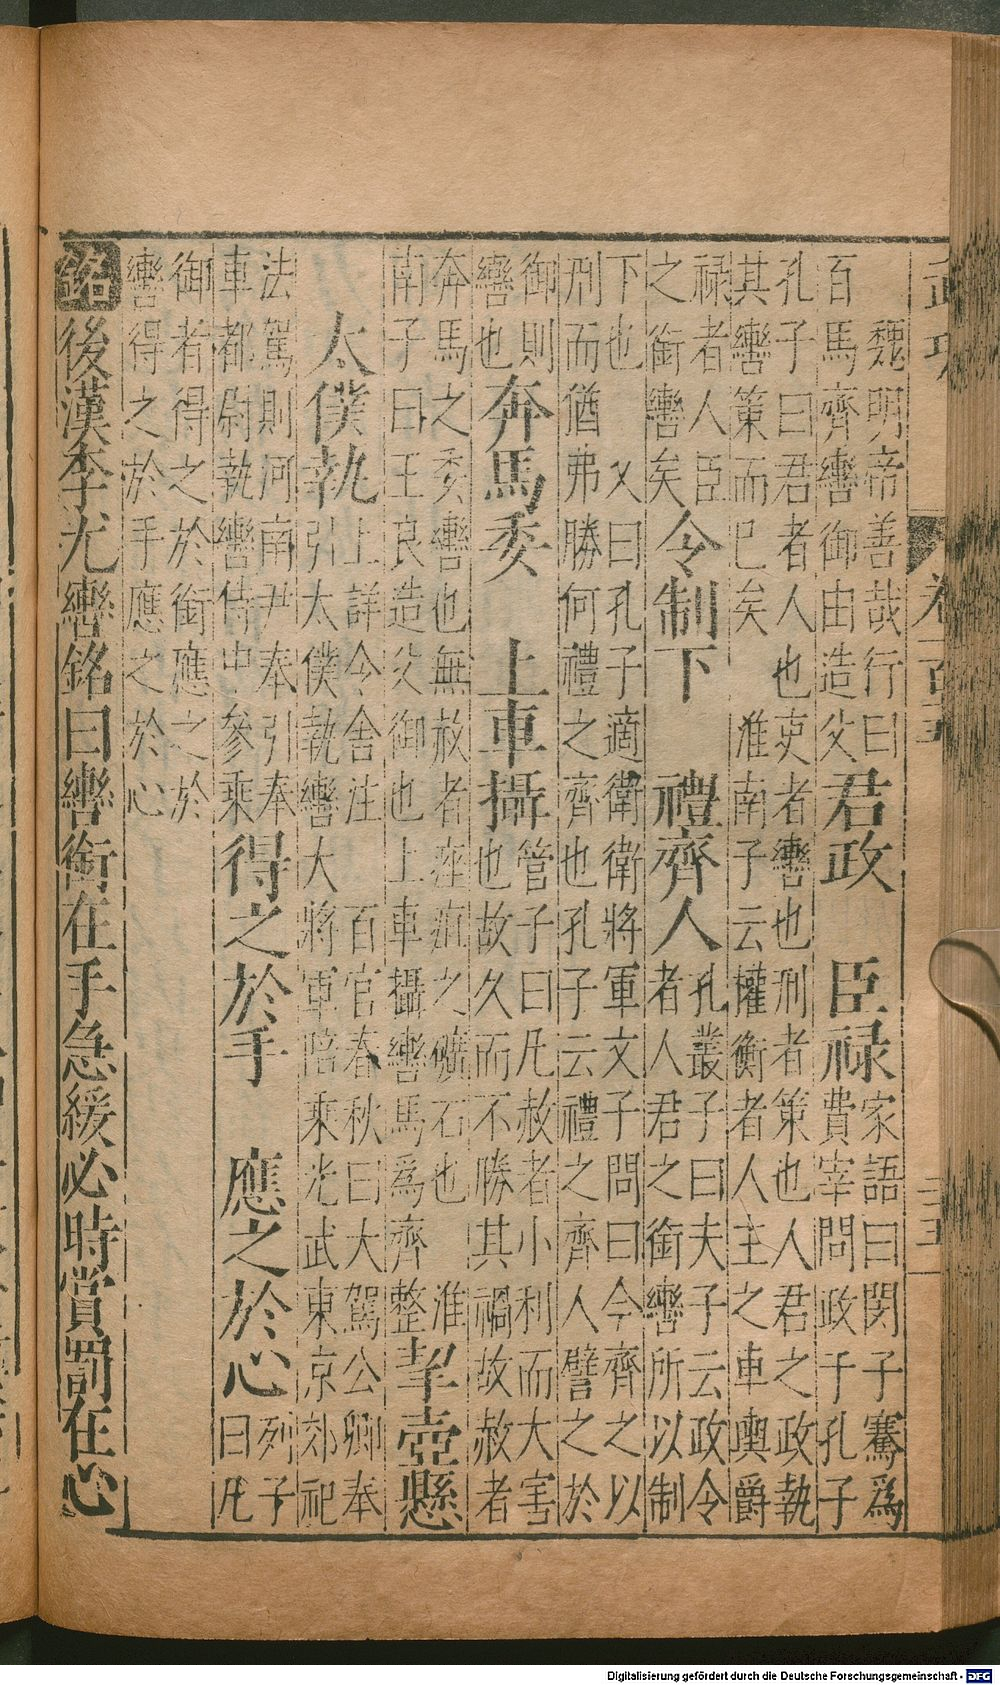 魏明帝善哉行曰
百馬齊轡御由造父
君政　臣禄
家語曰閔子騫為
費宰問政于孔子
孔子曰君者人也吏者轡也刑者策也人君之政執
其轡策而已矣　淮南子云權衡者人主之車輿爵
禄者人臣
之銜轡矣
令制下　禮齊人
孔叢子曰夫子云政令
者人君之銜轡所以制
下也　又曰孔子適衛衛將軍文子問曰今齊之以
刑而猶弗勝何禮之齊也孔子云禮之齊人譬之於
御則
轡也
奔馬委　上車攝
管子曰凡赦者小利而大害
也故久而不勝其禍故赦者
奔馬之委轡也無赦者痤疽之礦石也　淮
南子曰王良造父御也上車攝轡馬為齊整
挈壺懸
太僕執
上詳今舍注　百官春秋曰大駕公卿奉
引太僕執轡大將軍陪乘光武東京郊祀
法駕則河南尹奉引奉
車都尉執轡侍中參乘
得之於手　應之於心
列子
曰凡
御者得之於銜應之於
轡得之於手應之於心
銘後漢李尤轡銘曰轡銜在手急緩必時賞罰在心
Digitalisierung gefördert durch die Deutsche Forschungsgemeinschaft - DFG